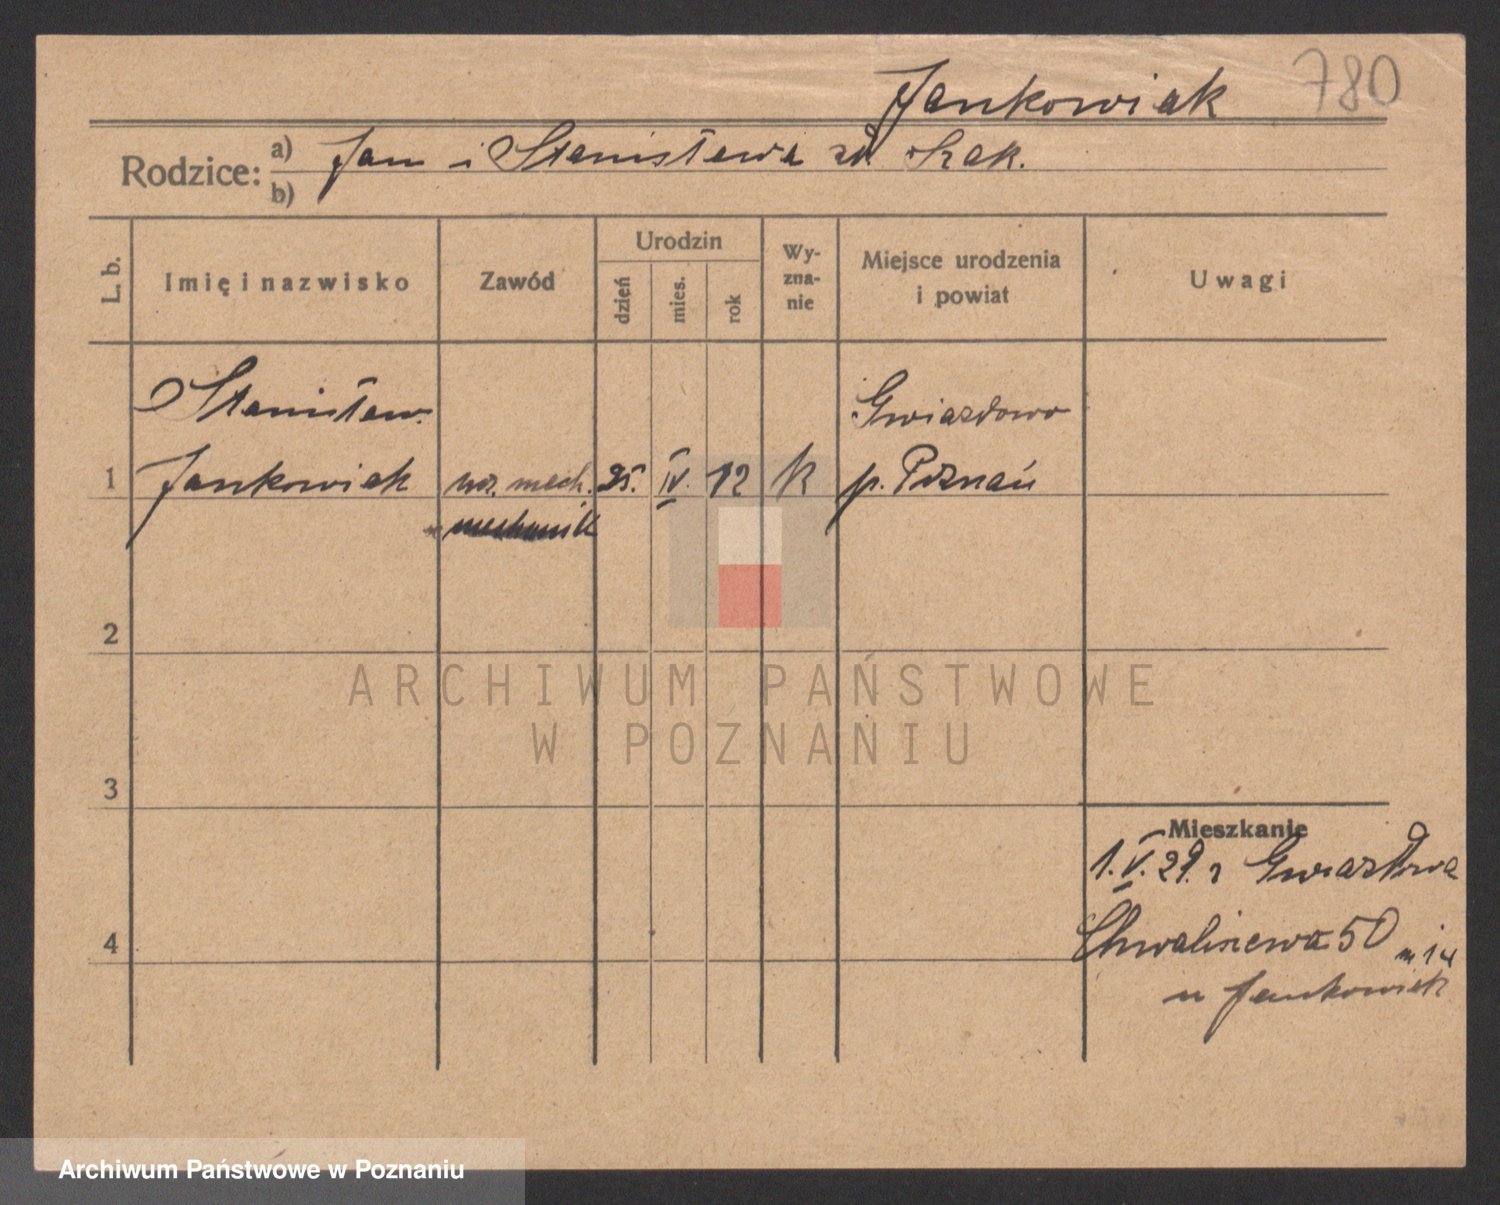 Jankowiak 780
Rodzice: a) Jan i Stanisława zd. Szak.
b)
L. b. Imię i nazwisko Zawód Urodzin dzień mies. rok Wy-zna-nie Miejsce urodzenia i powiat Uwagi
Stanisław Gwiazdowo
1 Jankowiak ucz. mech. 25. IV. 12 k p. Poznań
mechanik
2
ARCHIWUM PAŃSTWOWE
W POZNANIU
3
Mieszkanie
1.V.29. z Gwiazdowa
4 Chwaliszewo 50 m 14
u Jankowiak
Archiwum Państwowe w Poznaniu